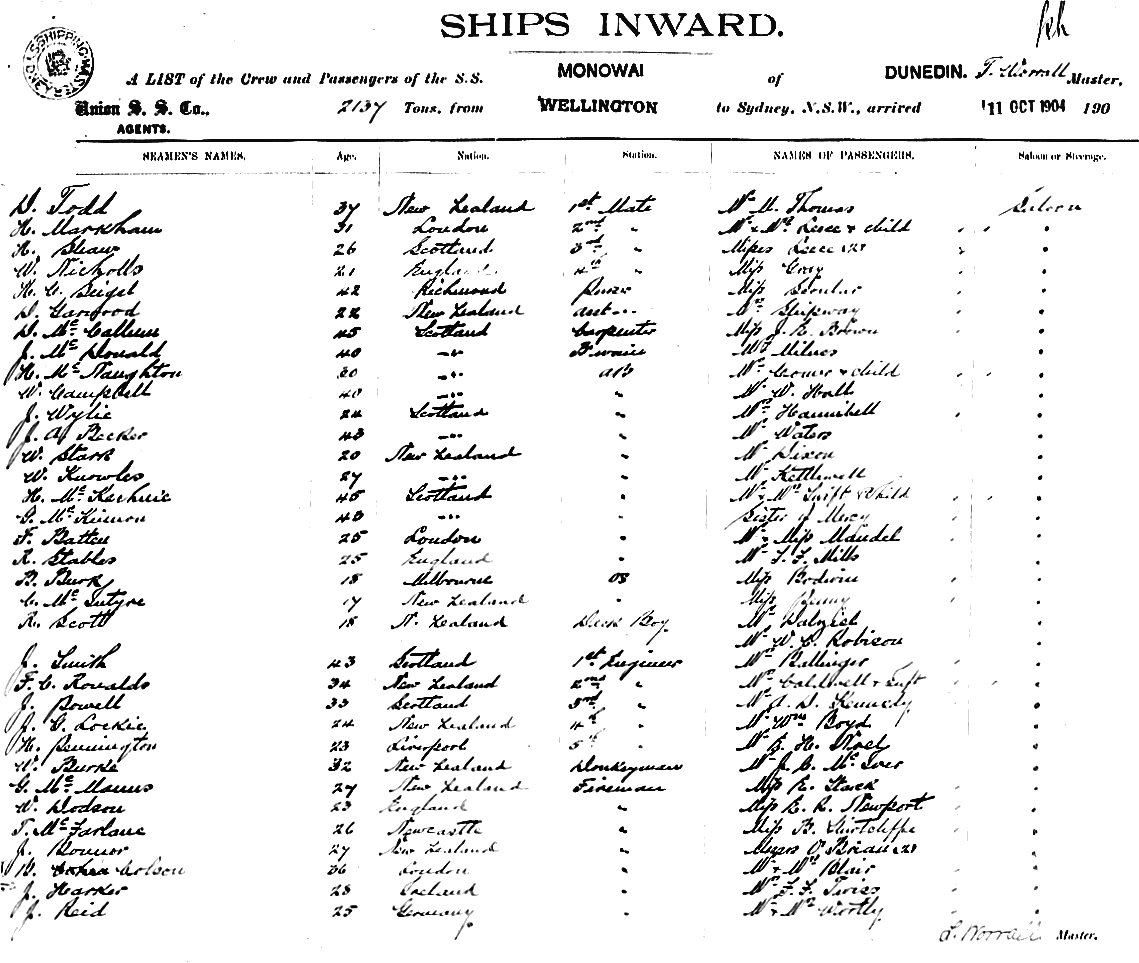 SHIPS INWARD.
A LIST of the Crew and Passengers of the S.S. MONOWAI of DUNEDIN. F. Worrall Master.
Union S. S. Co., AGENTS. 2137 Tons, from WELLINGTON to Sydney, N.S.W., arrived 11 OCT 1904 190
SEAMEN'S NAMES. Age. Nation. Station. NAMES OF PASSENGERS. Saloon or Steerage.
D. Todd 37 New Zealand 1st Mate Mr M. Thomas Saloon
H. Markham 31 London 2nd " Mr & Mrs Leece & child " "
H. Shaw 26 Scotland 3rd " Misses Leece (2) "
W. Nicholls 21 England 4th " Miss Gray " "
H. C. Seigel 42 Richmond Purser Miss Scoular " "
D. Garwood 22 New Zealand " Shipway " "
D. McCallum 45 Scotland Carpenter Miss J. E. Brown " "
J. McDonald 40 " Milnes "
H. McNaughton 30 " AB & child " "
W. Campbell 40 " " Mr W. Hall "
J. Wylie 24 Scotland " Hannibell " "
J. A. Becker 43 " " Mr Waters "
W. Stark 20 New Zealand " Mr Dixon "
W. Knowles 27 " " Mr Kettlewell "
H. McKechnie 45 Scotland " Mr & Mrs Swift & Child " "
G. McKinnon 43 " " Sister of Mercy " "
F. Batten 25 London " Mr & Miss Mandel " "
R. Stables 25 England " Mr F. F. Mills "
B. Burk 18 Melbourne OS Miss Bodwin " "
C. McIntyre 17 New Zealand " Miss Penny " "
R. Scott 18 N. Zealand Deck Boy Dalziel "
W. C. Robison "
J. Smith 43 Scotland 1st Engineer Ballinger "
F. C. Ronalds 34 New Zealand 2nd " Caldwell & " "
J. Bowell 33 Scotland 3rd " Mr A. D. Kennedy "
J. G. Lockie 24 New Zealand 4th " Mr Wm Boyd "
H. Pennington 23 Liverpool 5th " Mr H. Noel "
W. Burke 32 New Zealand Donkeyman Mr J. C. McIver "
G. McManus 27 New Zealand Fireman Miss E. Stack " "
W. Dodson 23 England " Miss E. R. Newport " "
T. McFarlane 26 Newcastle " Miss B. Surtcliffe " "
J. Connor 27 New Zealand " O'Brian (2) "
Colson 36 London " Mr & Mrs Blair " "
J. Harker 28 Ireland " F. F. Twiss "
J. Reid 25 Germany " Mr & Mrs Wortly " "
Worrall Master.